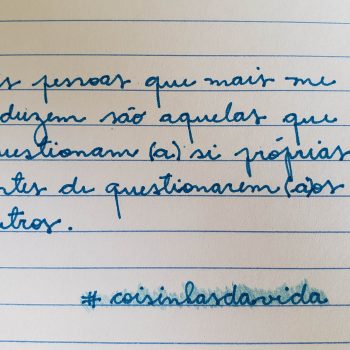 s pessoas que mais me
duzem são aquelas que
uestionam (a) si próprias
ntes de questionarem (a)os
utros.
# coisinhasdavida